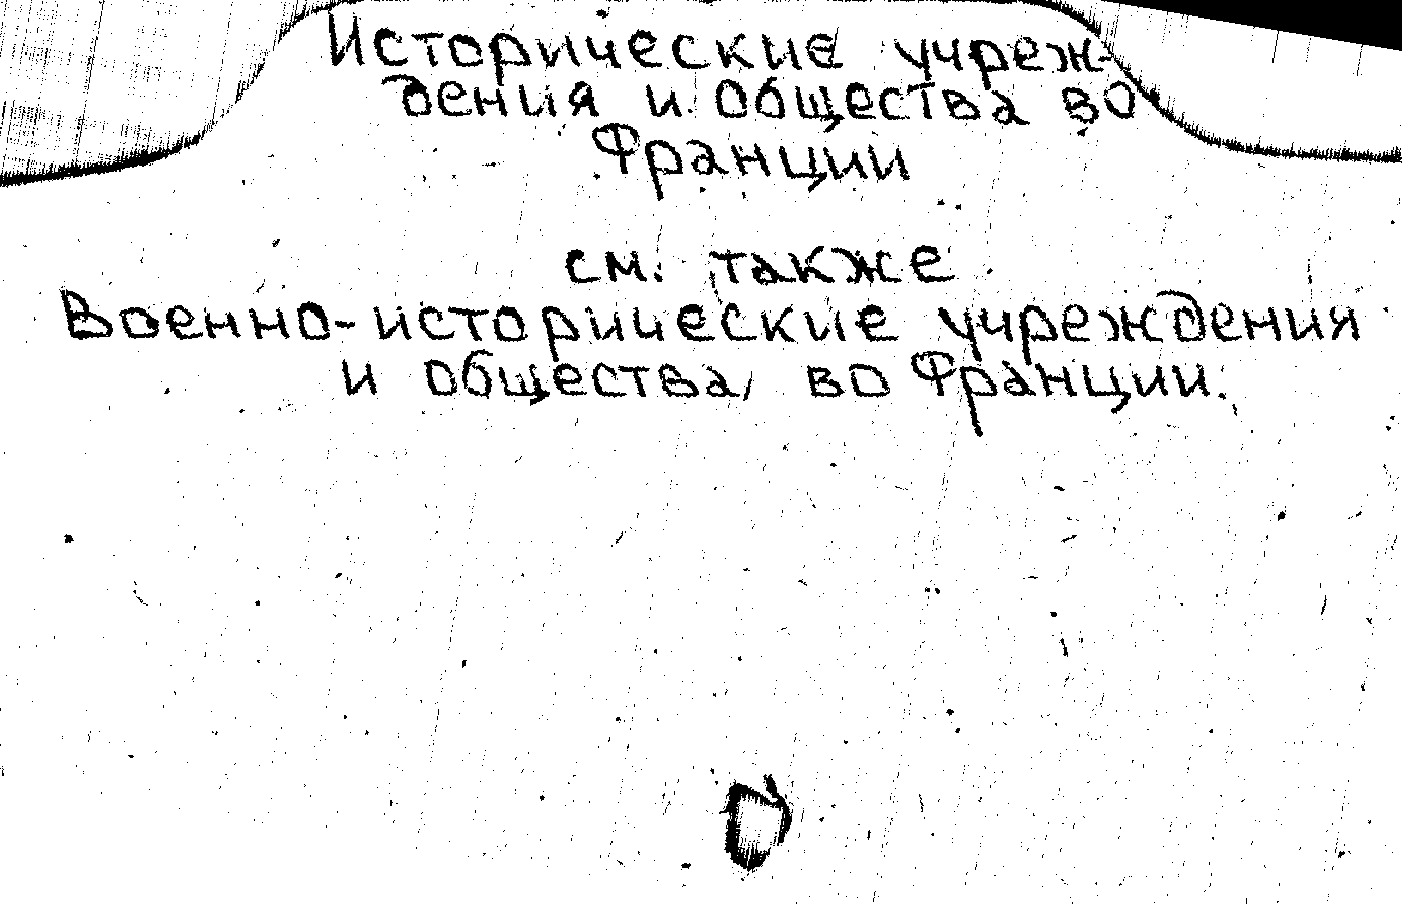 Исторические учреж-
дения и общества во
Франции
см. также
Военно-исторические учреждения
и общества, во Франции.